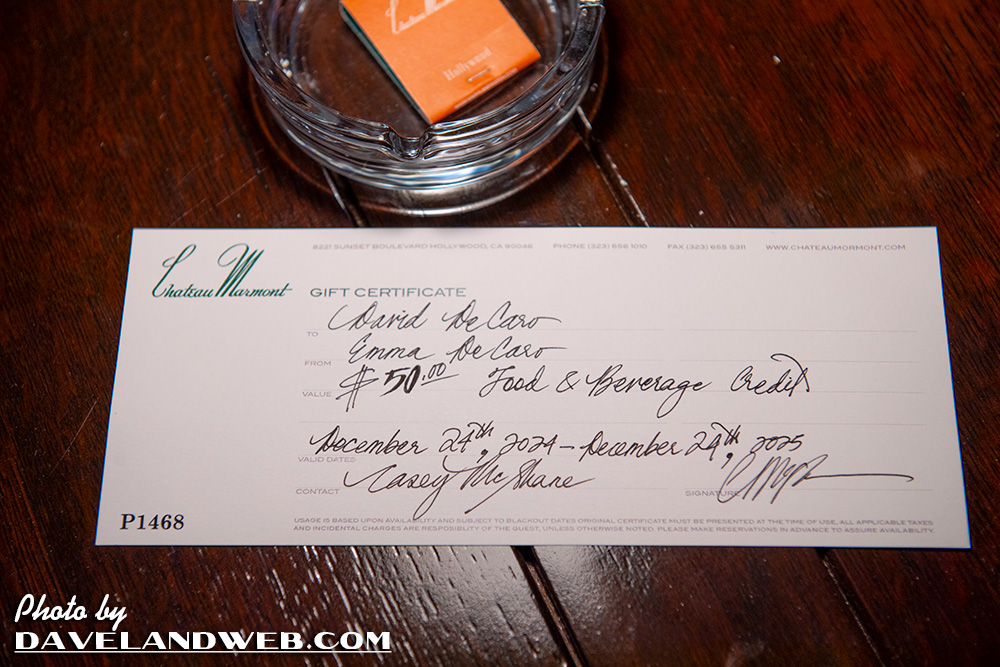 Chateau Marmont
Hollywood
Chateau Marmont
8221 SUNSET BOULEVARD HOLLYWOOD, CA 90046 PHONE (323) 656 1010 FAX (323) 655 5311 WWW.CHATEAUMORMONT.COM
GIFT CERTIFICATE
TO David DeCaro
FROM Emma DeCaro
VALUE $50.00 Food & Beverage Credit
VALID DATES December 24th, 2024 – December 24th, 2025
CONTACT Casey McShane SIGNATURE
P1468
USAGE IS BASED UPON AVAILABILITY AND SUBJECT TO BLACKOUT DATES ORIGINAL CERTIFICATE MUST BE PRESENTED AT THE TIME OF USE, ALL APPLICABLE TAXES
AND INCIDENTAL CHARGES ARE RESPOSIBLITY OF THE GUEST, UNLESS OTHERWISE NOTED. PLEASE MAKE RESERVATIONS IN ADVANCE TO ASSURE AVAILABILITY.
Photo by
DAVELANDWEB.COM